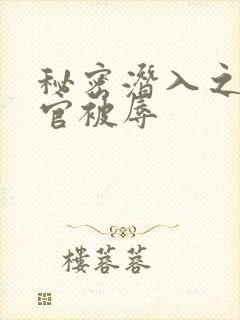 秘密潜入之
官被辱
楼蓉蓉